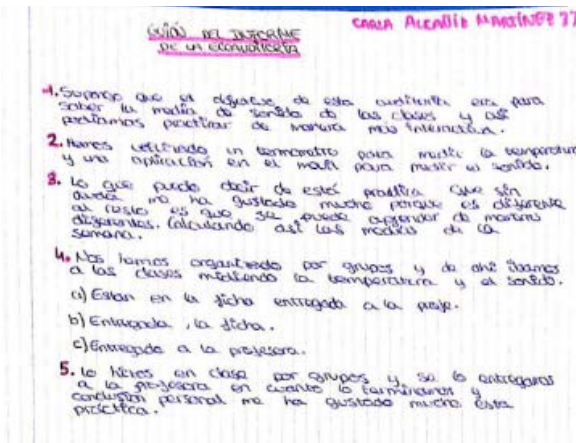 GUIÓN DEL INFORME
DE LA ECOAUDITORÍA
CARLA MARTÍNEZ
1. Supongo que el objetivo de esta auditoría era para
saber la media de sonido de las clases y así
podíamos practicar de manera más interactiva.
2. Hemos utilizado un termometro para medir la temperatura
y una aplicación en el movil para medir el sonido.
3. Lo que puedo decir de esta práctica que sin
duda me ha gustado mucho porque es diferente
al resto es que se puede aprender de maneras
diferentes. Calculando así las medias de la
semana.
4. Nos hemos organizado por grupos y de ahí íbamos
a las clases midiendo la temperatura y el sonido.
a) Estan en la ficha entregada a la profe.
b) Entregada, la ficha.
c) Entregada a la profesora.
5. Lo hicimos en clase por grupos y se lo entregamos
a la profesora en cuanto lo terminamos y
conclusión personal me ha gustado mucho esta
práctica.